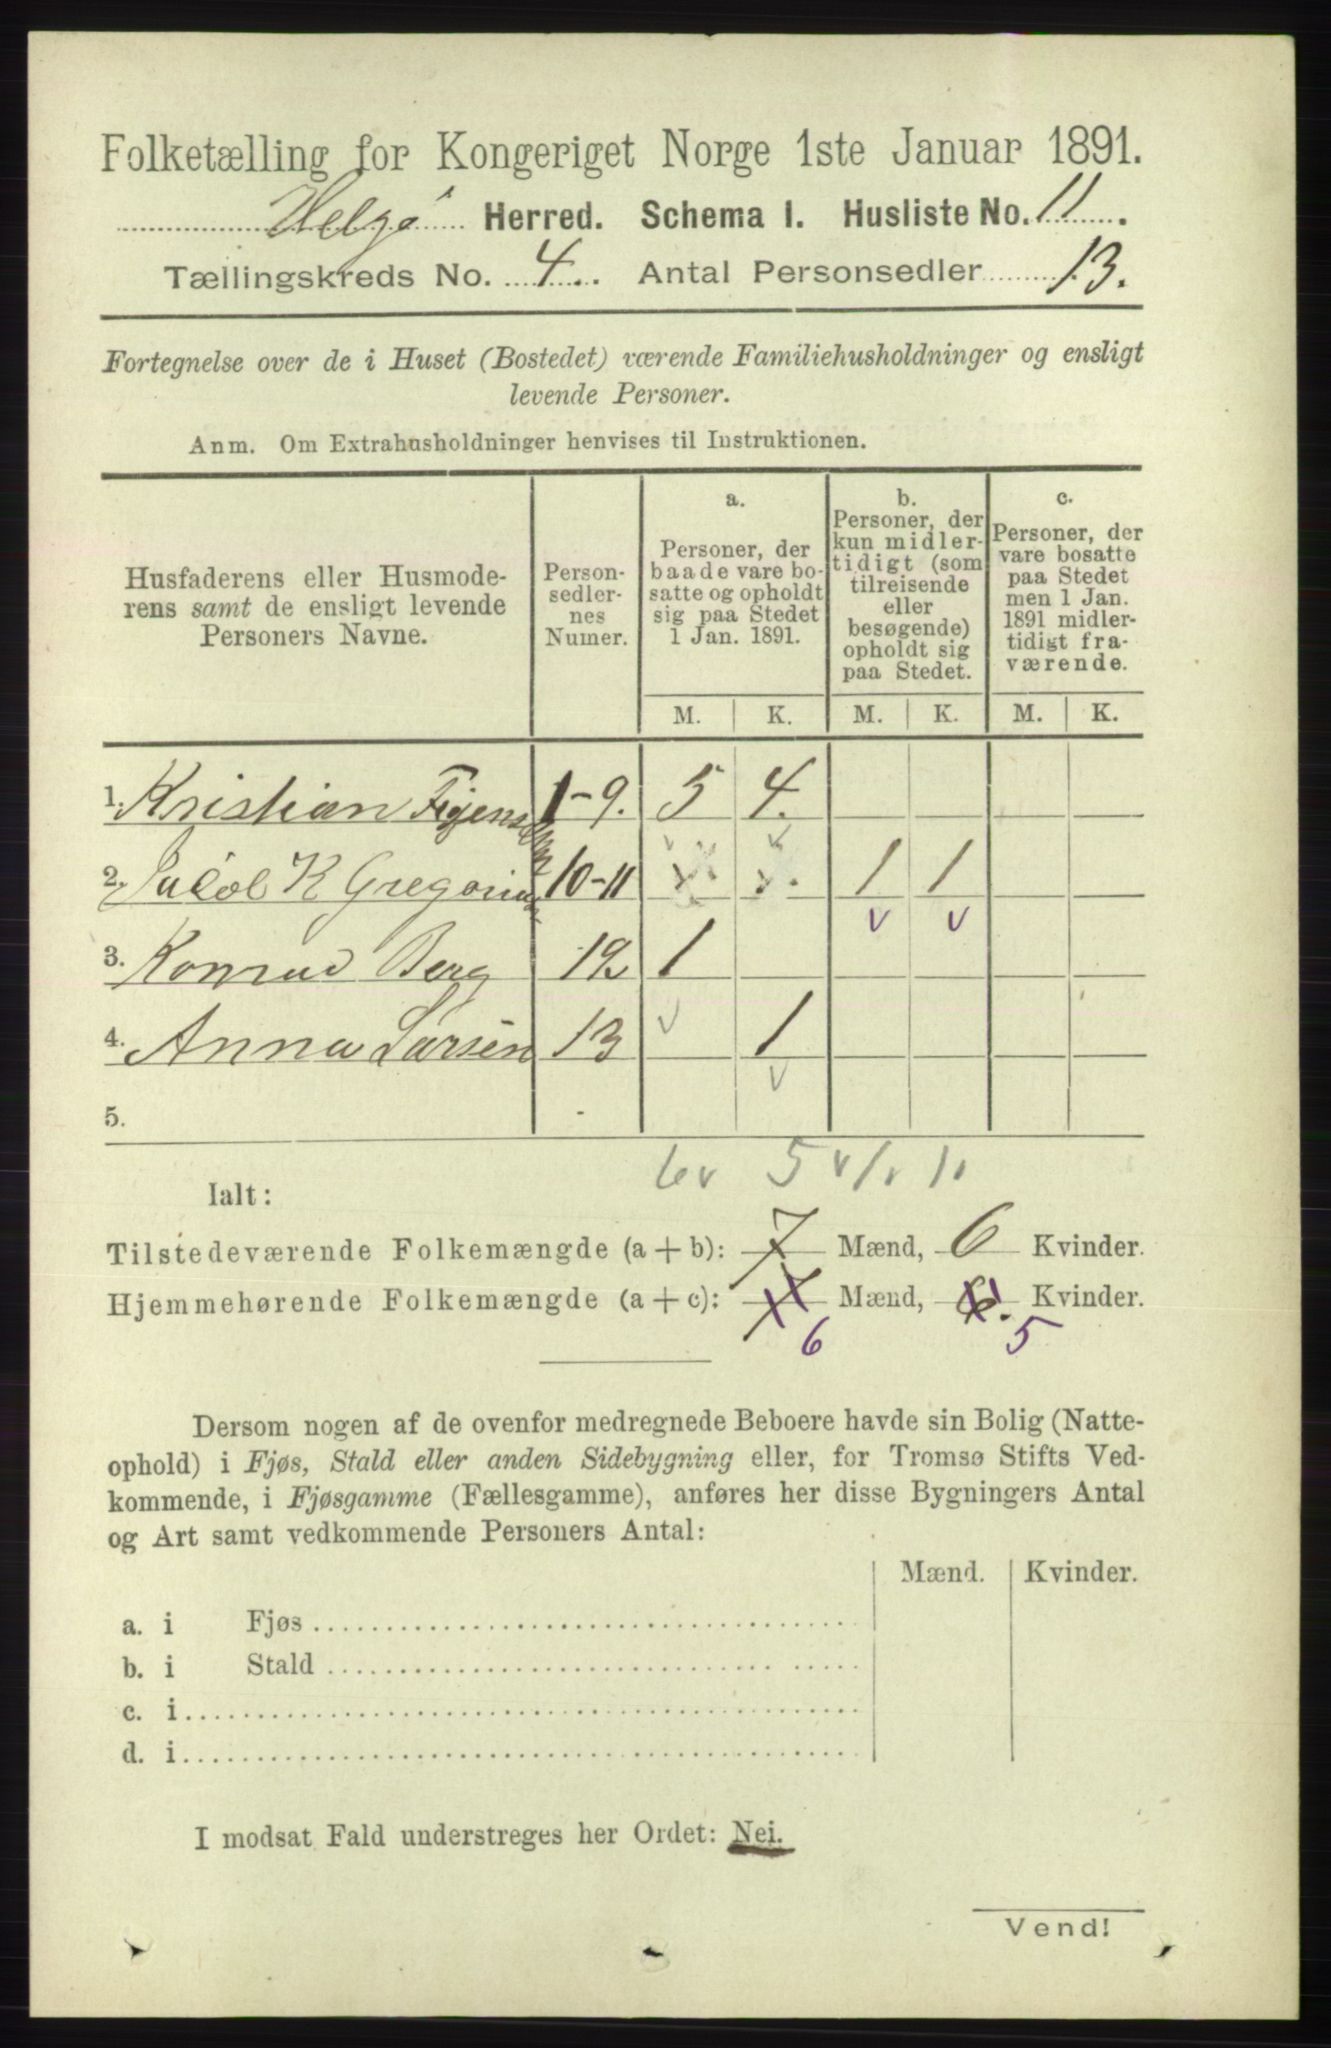 Folketælling for Kongeriget Norge 1ste Januar 1891.
Helgø Herred. Schema I. Husliste No. 11.
Tællingskreds No. 4. Antal Personsedler 13.
Fortegnelse over de i Huset (Bostedet) værende Familiehusholdninger og ensligt
levende Personer.
Anm. Om Extrahusholdninger henvises til Instruktionen.
Husfaderens eller Husmode-
rens samt de ensligt levende
Personers Navne.
Person-
sedler-
nes
Numer.
a.
Personer, der
baade vare bo-
satte og opholdt
sig paa Stedet
1 Jan. 1891.
b.
Personer, der
kun midler-
tidigt (som
tilreisende
eller
besøgende)
opholdt sig
paa Stedet.
c.
Personer, der
vare bosatte
paa Stedet
men 1 Jan.
1891 midler-
tidigt fra-
værende.
M. K. M. K. M. K.
1. Kristian 1-9. 5 4.
2. Jakob K 10-11 1 1
v v
3. Konrad Berg 12 1
4. Anna Larsen 13 v 1
v
5. -
6 v 5 v 1 v 1 v
Ialt:
Tilstedeværende Folkemængde (a + b): 7 Mænd, 6 Kvinder.
Hjemmehørende Folkemængde (a + c): 7 Mænd, 6. Kvinder.
6 5
Dersom nogen af de ovenfor medregnede Beboere havde sin Bolig (Natte-
ophold) i Fjøs, Stald eller anden Sidebygning eller, for Tromsø Stifts Ved-
kommende, i Fjøsgamme (Fællesgamme), anføres her disse Bygningers Antal
og Art samt vedkommende Personers Antal:
Mænd. Kvinder.
a. i Fjøs
b. i Stald
c. i
d. i
I modsat Fald understreges her Ordet: Nei.
Vend!